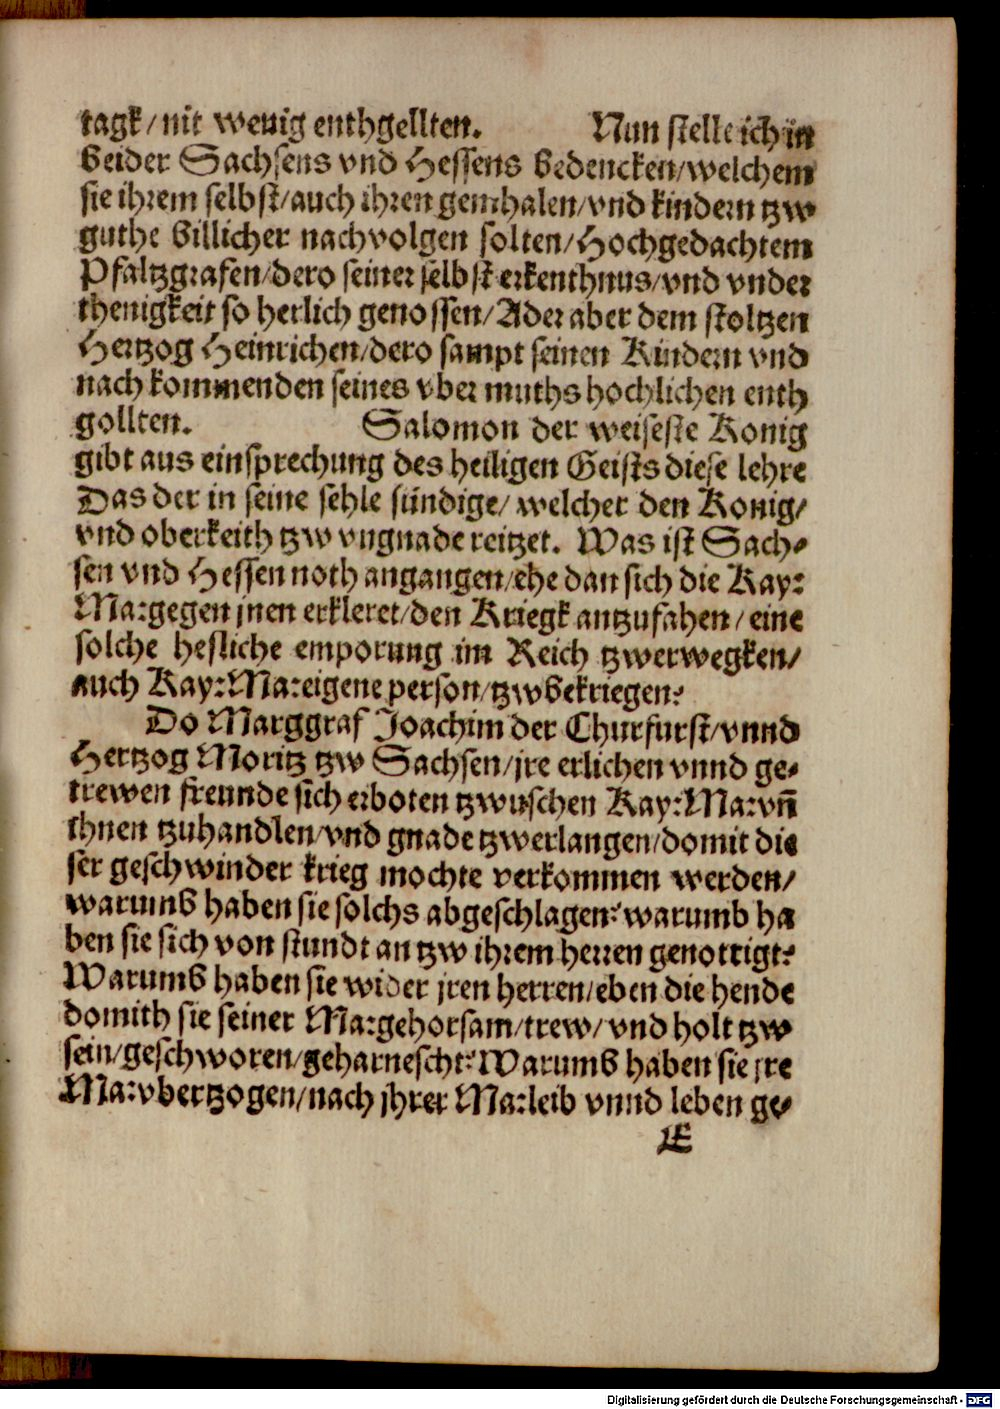 tagk/nit wenig enthgellten. Nun stelle ich in
beider Sachsens vnd Hessens bedencken/welchem
sie ihrem selbst/auch ihren gemhalen/vnd kindern tzw
guthe billicher nachvolgen solten/Hochgedachtem
Pfaltzgrafen/dero seiner selbst erkenthnus/vnd vnder
thenigkeit so herlich genossen/Ader aber dem stoltzen
Hertzog Heinrichen/dero sampt seinen Kindern vnd
nach kommenden seines vber muths hochlichen enth
gollten. Salomon der weiseste Konig
gibt aus einsprechung des heiligen Geists diese lehre
Das der in seine sehle sündige/ welcher den Konig/
vnd oberkeith tzw vngnade reitzet. Was ist Sach-
sen vnd Hessen noth angangen/ehe dan sich die Kay:
Ma:gegen jnen erkleret/den Kriegk antzufahen/ eine
solche hesliche emporung im Reich tzwerwegken/
auch Kay:Ma:eigene person/tzwbekriegen?
Do Marggraf Joachim der Churfurst/vnnd
Hertzog Moritz tzw Sachsen/jre erlichen vnnd ge-
trewen freunde sich erboten tzwuschen Kay:Ma:vñ
ihnen tzuhandlen/vnd gnade tzwerlangen/domit die
ser geschwinder krieg mochte verkommen werden/
warumb haben sie solchs abgeschlagen?warumb ha
ben sie sich von stundt an tzw ihrem herren genottigt?
Warumb haben sie wider jren herren/eben die hende
domith sie seiner Ma:gehorsam/trew/vnd holt tzw
sein/geschworen/geharnescht?Warumb haben sie jre
Ma:vbertzogen/nach jhrer Ma:leib vnnd leben ge-
E
Digitalisierung gefördert durch die Deutsche Forschungsgemeinschaft - DFG